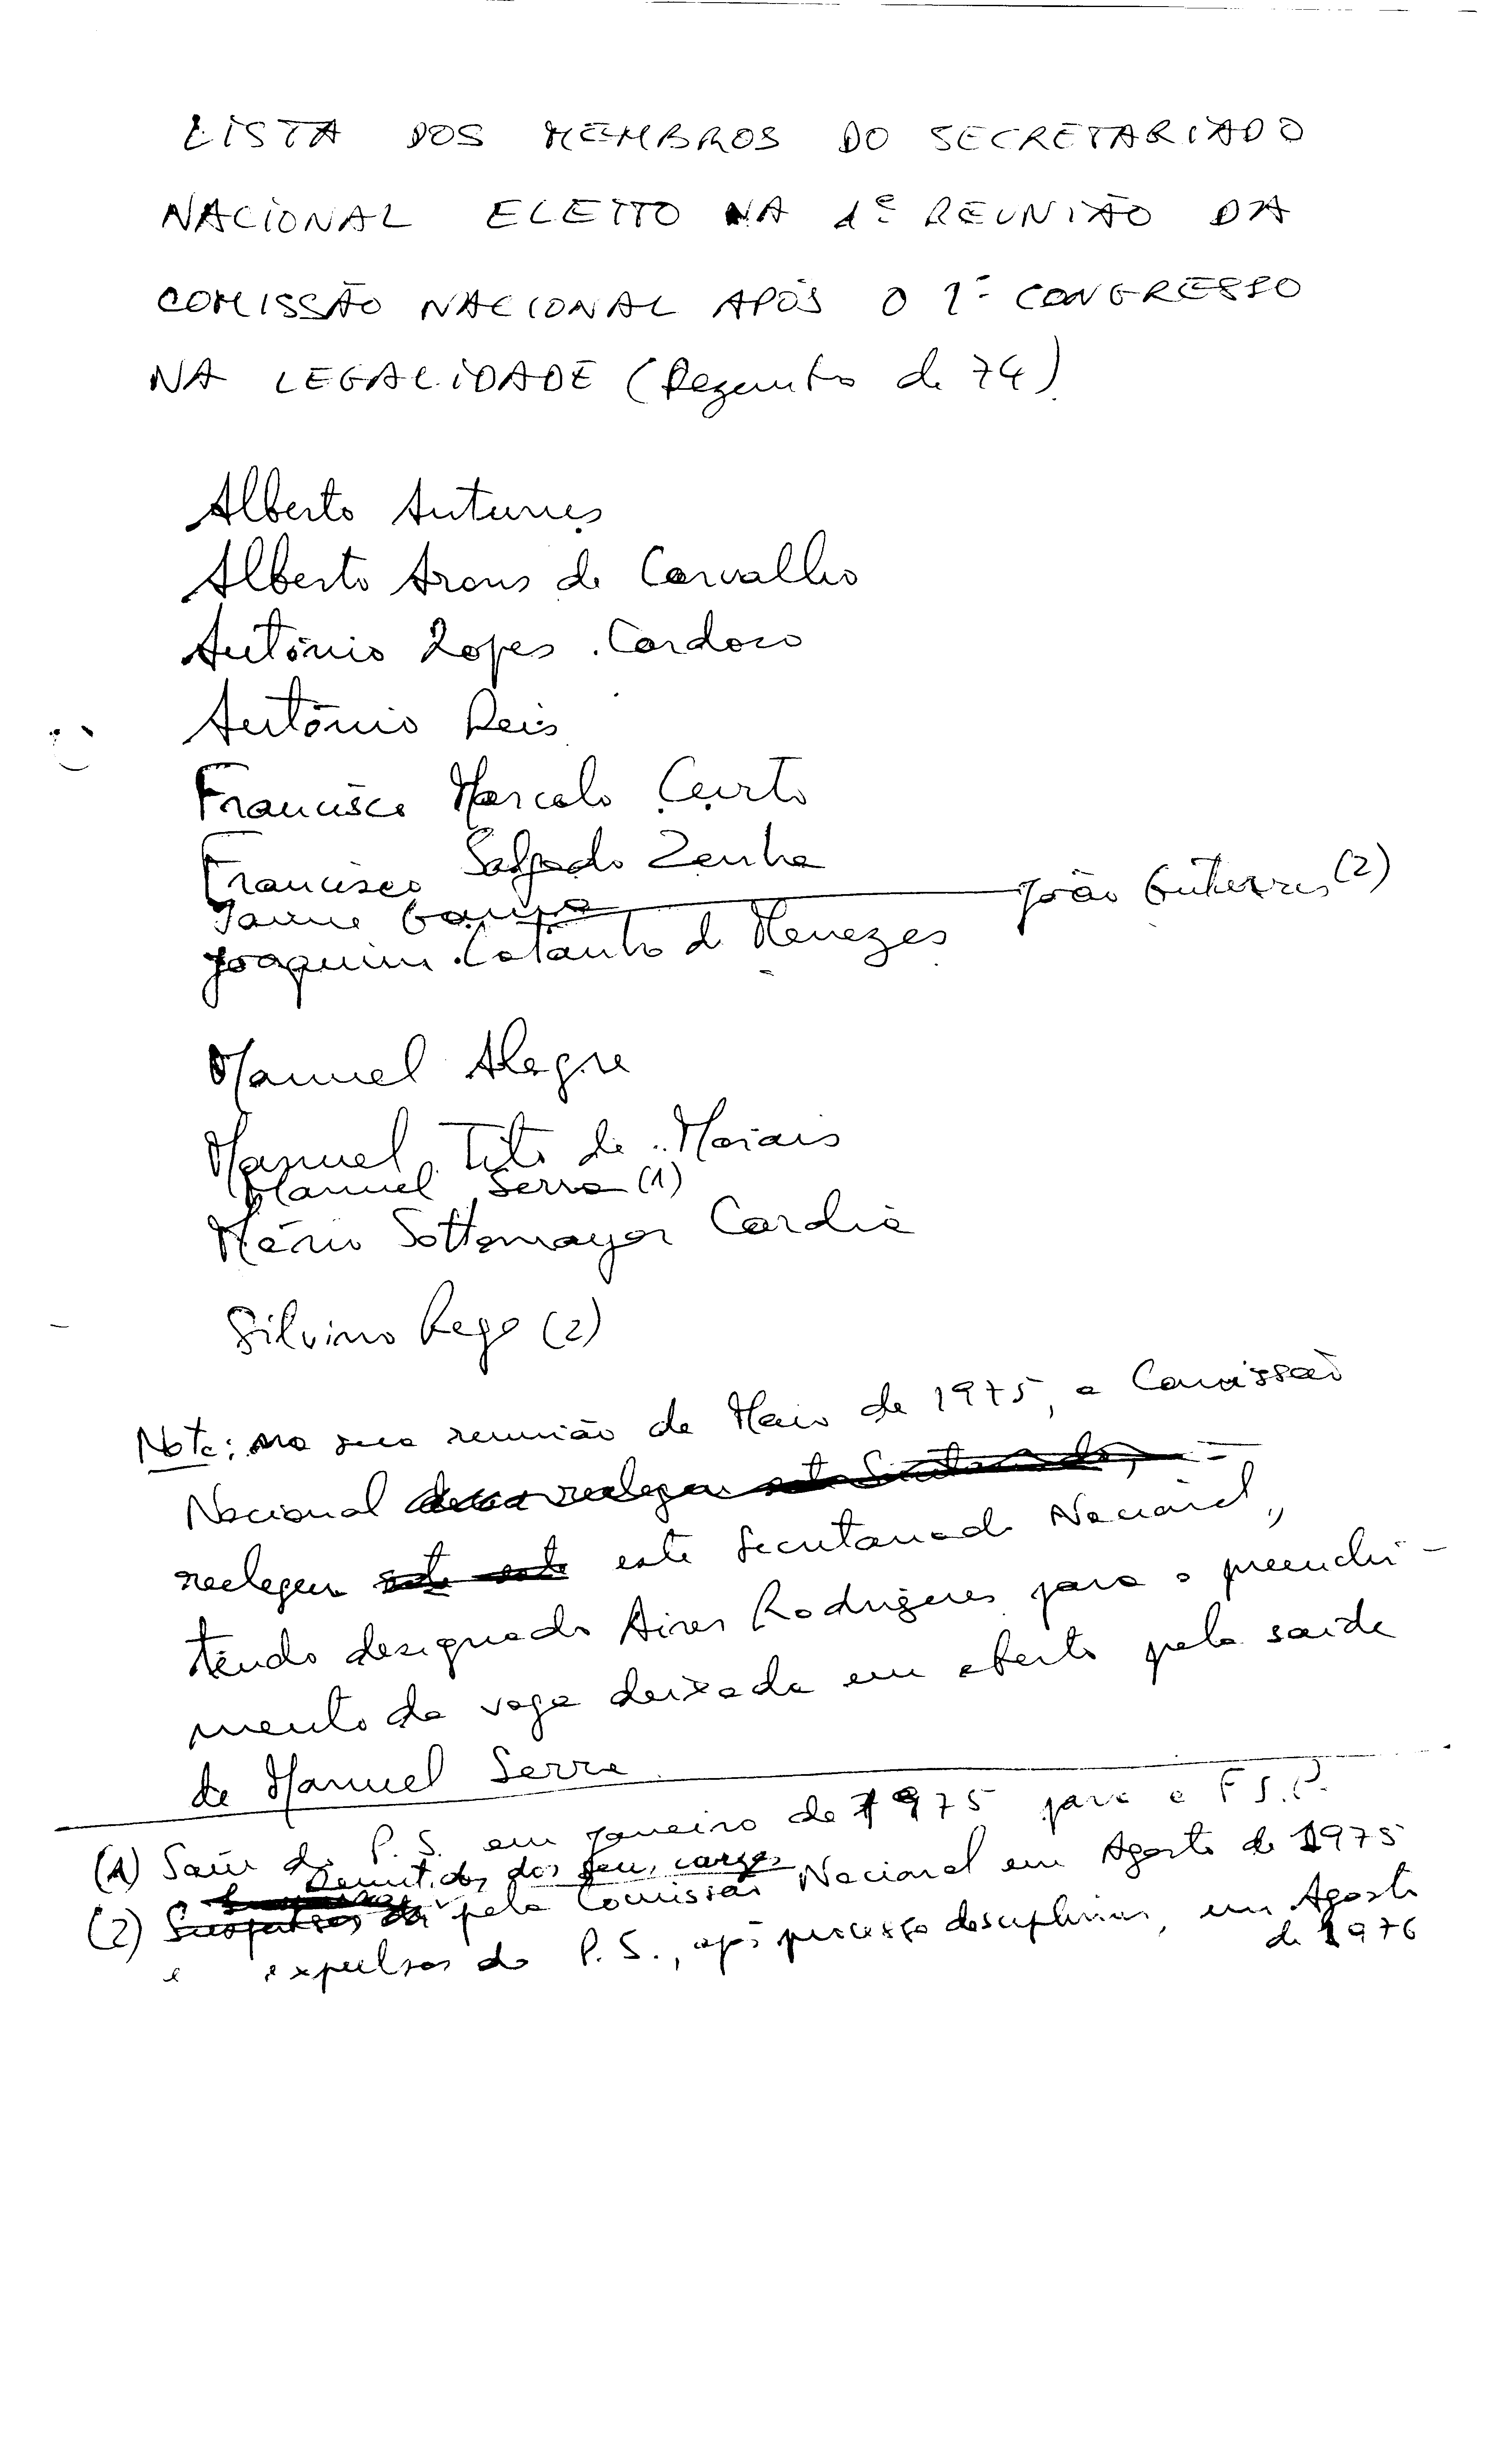 LISTA DOS MEMBROS DO SECRETARIADO
NACIONAL ELEITO NA 1ª REUNIÃO DA
COMISSÃO NACIONAL APÓS O 1º CONGRESSO
NA LEGALIDADE (Dezembro de 74)
Alberto Antunes
Alberto Arons de Carvalho
António Lopes Cardoso
António Reis
Francisco Marcelo Curto
Francisco Salgado Zenha
Jaime Gama
João Guterres (2)
Joaquim Catanho de Menezes
Manuel Alegre
Manuel Tito de Morais
Manuel Serra (1)
Mário Sottomayor Cardia
Silvino Rego (2)
Nota: na sua reunião de Maio de 1975, a Comissão
Nacional
reelegeu este Secretariado Nacional,
tendo designado Aires Rodrigues para o preenchi-
mento da vaga deixada em aberto pela saída
de Manuel Serra
(1) Saiu do P.S. em Janeiro de 1975 para a F.S.P.
Demitidos dos seus cargos
(2) pela Comissão Nacional em Agosto de 1975
e expulsos do P.S., após processo disciplinar, em Agosto
de 1976